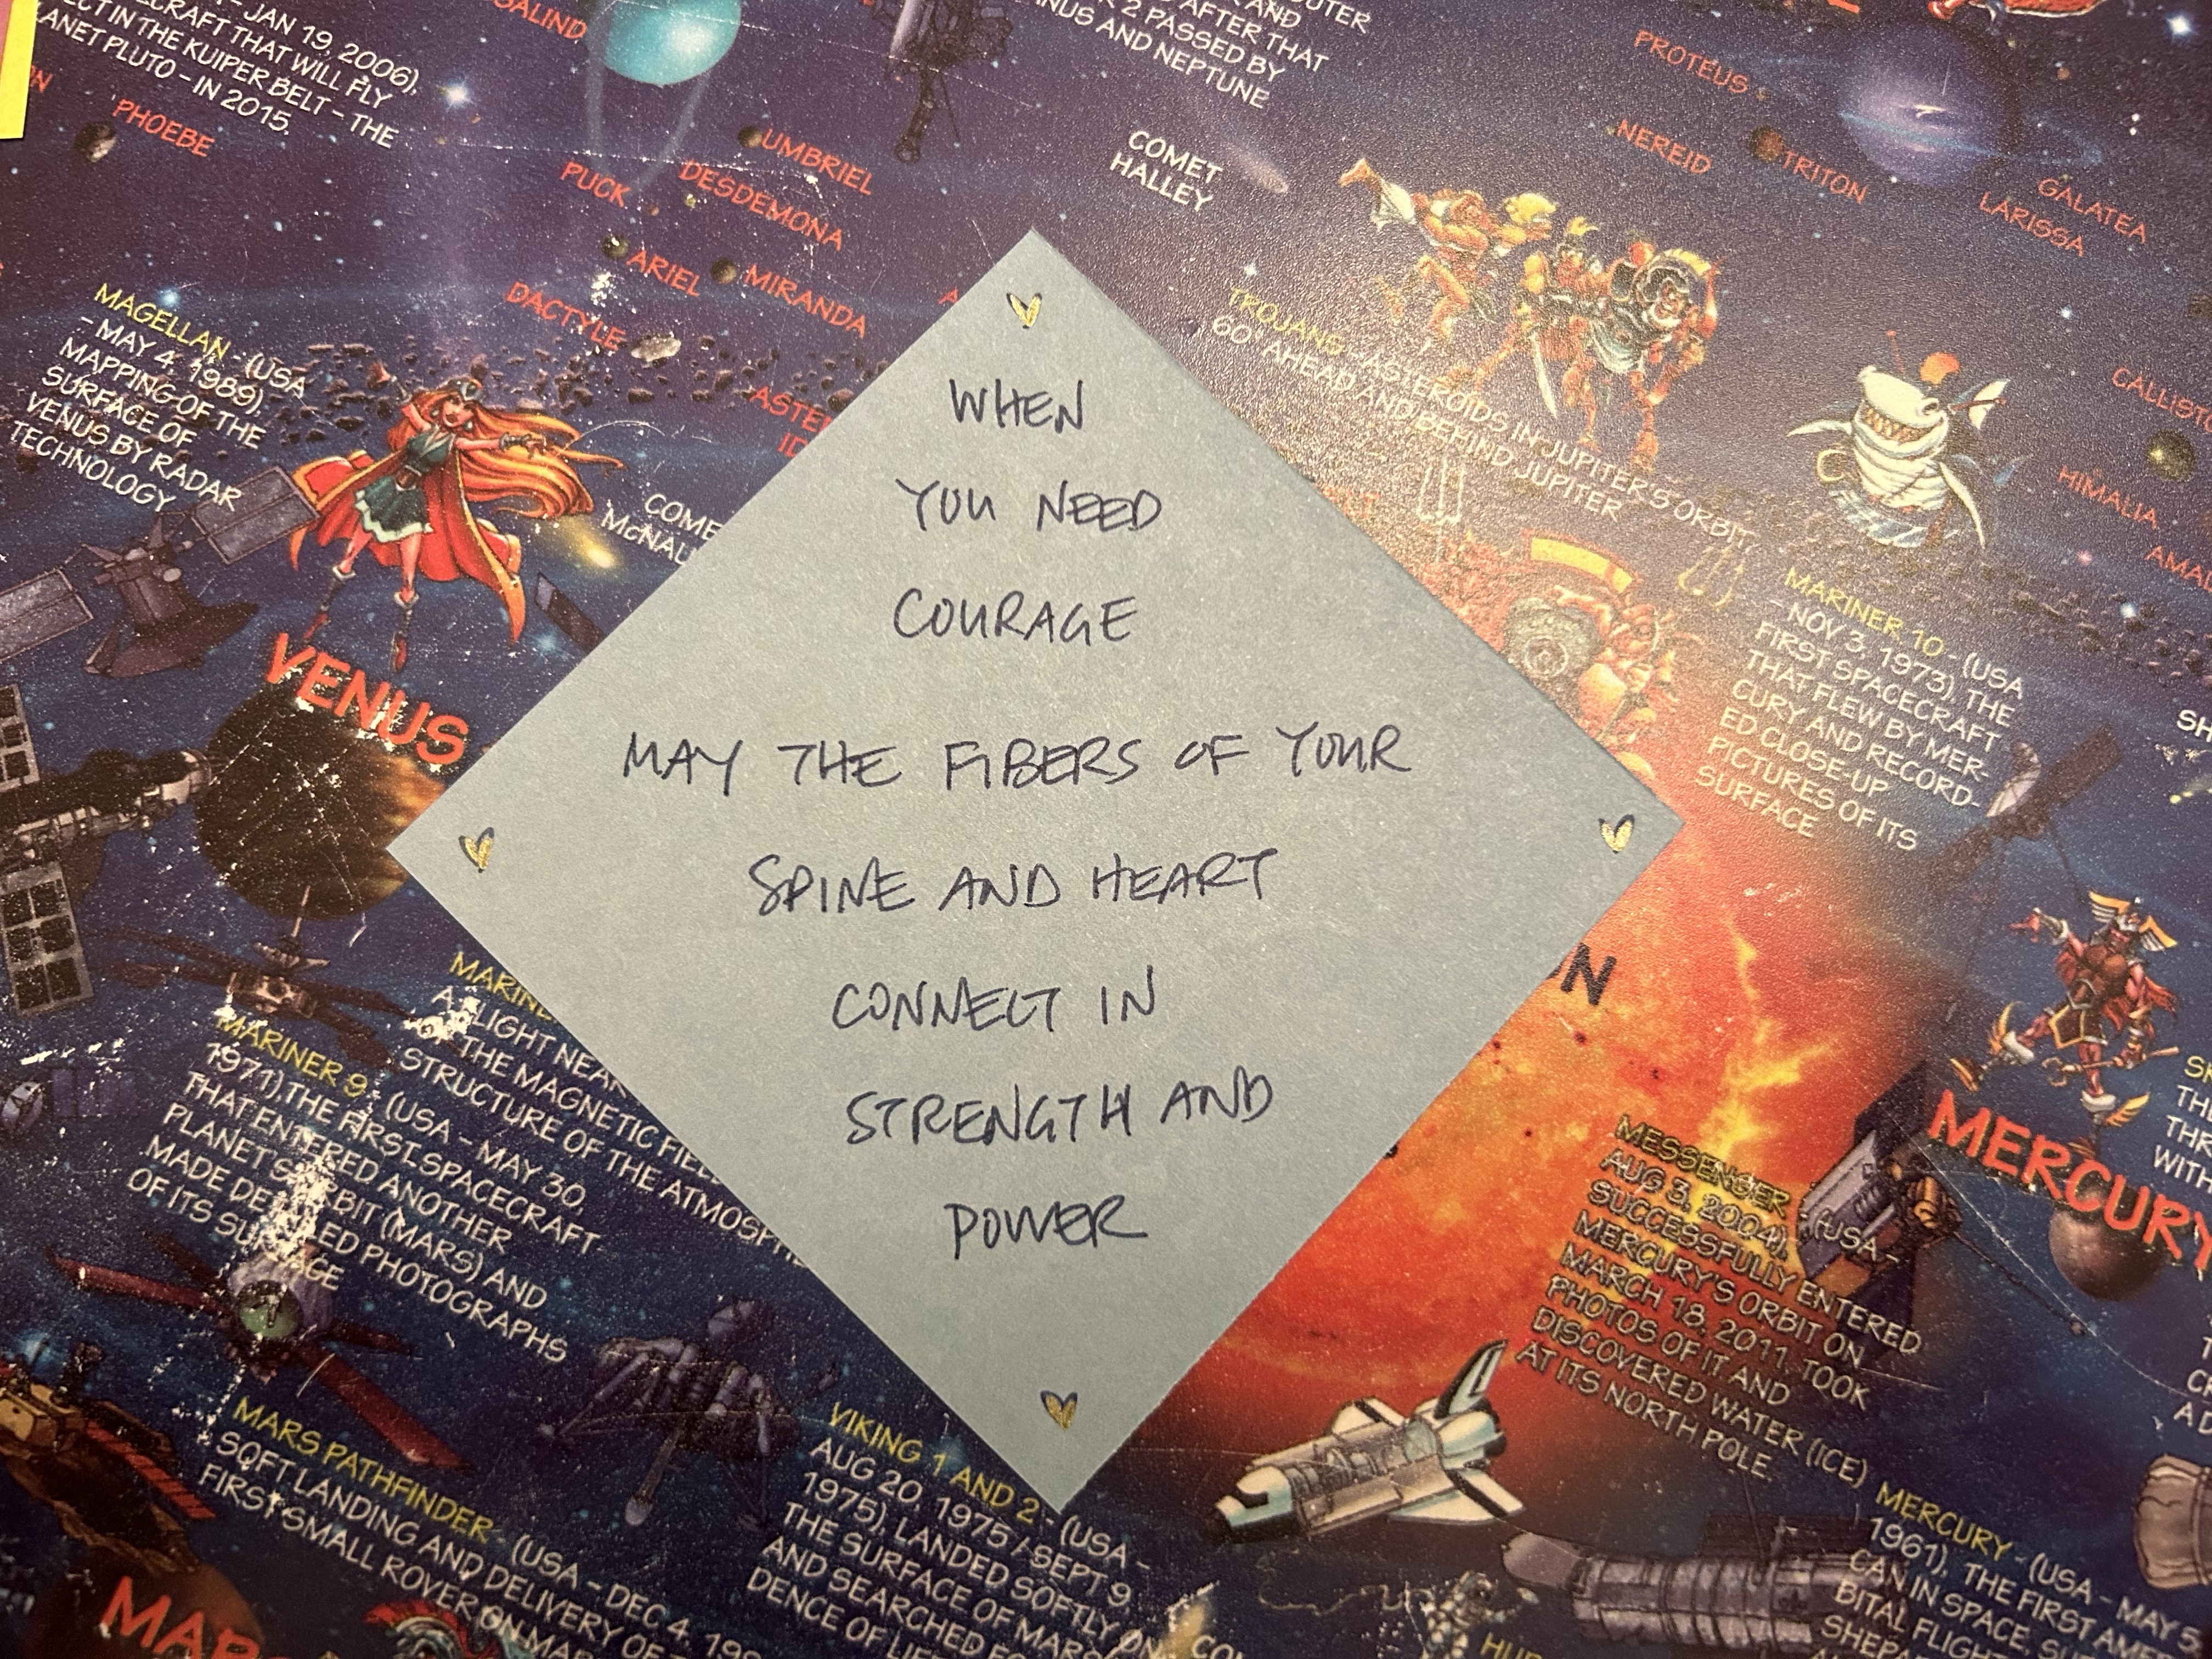 - JAN 19, 2006),
ECRAFT THAT WILL FLY
ECT IN THE KUIPER BELT - THE
ANET PLUTO - IN 2015.
PHOEBE
SALIND
UMBRIEL
PUCK
DESDEMONA
ARIEL
MIRANDA
DACTYLE
UTER
AND
AFTER THAT
2 PASSED BY
NUS AND NEPTUNE
COMET
HALLEY
PROTEUS
NEREID
TRITON
GALATEA
LARISSA
CALLIST
HIMALIA
AMAL
MAGELLAN - (USA
- MAY 4, 1989).
MAPPING OF THE
SURFACE OF
VENUS BY RADAR
TECHNOLOGY
ASTE
ID
COME
McNAU
TROJANS - ASTEROIDS IN JUPITER'S ORBIT,
60° AHEAD AND BEHIND JUPITER
VENUS
WHEN
YOU NEED
COURAGE
MAY THE FIBERS OF YOUR
SPINE AND HEART
CONNECT IN
STRENGTH AND
POWER
MARINER 10 - (USA
- NOV 3, 1973). THE
FIRST SPACECRAFT
THAT FLEW BY MER-
CURY AND RECORD-
ED CLOSE-UP
PICTURES OF ITS
SURFACE
N
MARINE
A FLIGHT NEAR
OF THE MAGNETIC FIEL
STRUCTURE OF THE ATMOSPHE
MARINER 9 - (USA - MAY 30,
1971). THE FIRST SPACECRAFT
THAT ENTERED ANOTHER
PLANET'S ORBIT (MARS) AND
MADE DETAILED PHOTOGRAPHS
OF ITS SURFACE
MERCURY
MESSENGER (USA -
AUG 3, 2004).
SUCCESSFULLY ENTERED
MERCURY'S ORBIT ON
MARCH 18, 2011. TOOK
PHOTOS OF IT AND
DISCOVERED WATER (ICE)
AT ITS NORTH POLE.
MARS PATHFINDER - (USA - DEC 4, 199
SOFT LANDING AND DELIVERY OF
FIRST SMALL ROVER ON MAR
VIKING 1 AND 2 - (USA -
AUG 20, 1975 / SEPT 9,
1975). LANDED SOFTLY ON
THE SURFACE OF MARS
AND SEARCHED FO
DENCE OF LIFE
MERCURY - (USA - MAY 5,
1961). THE FIRST AMER
CAN IN SPACE, SU
BITAL FLIGHT
SHEPA
MAR
HUB